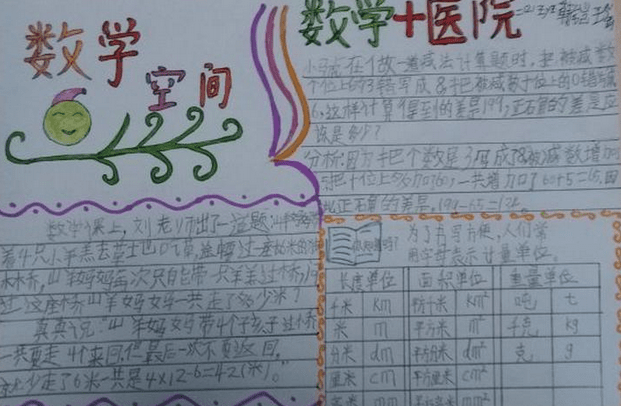 数学
空间
数学+医院
小马虎在做一道减法计算题时，把被减数
个位上的3错写成8，把被减数十位上的0错写成
6，这样计算得到的差是199，正确的差应
该是多少？
分析：因为把个数是3写成8，被减数增加
5，把十位上0 60，一共增加了60+5=65，因
此正确的差是：199-65=134。
数学课上，刘老师出了一道题：山羊妈妈
着4只小羊羔去草地吃草，途中 过一座 米的
木桥，山羊妈妈每次只能带一只羊羔过桥，
过这座桥山羊妈妈一共走了多少米？
真真说：山羊妈妈带4个孩子过桥
一共要走4个来回，但最后一次不要返回，
少走了6米，一共是4×12-6=42(米)。
你知道吗？
为了书写方便，人们常
用字母表示计量单位。
长度单位 面积单位 重量单位
千米 km 平方千米 km² 吨 t
米 m 平方米 m² 千克 kg
分米 dm 平方分米 dm² 克 g
厘米 cm 平方厘米 cm²
毫米 mm 平方毫米 mm²